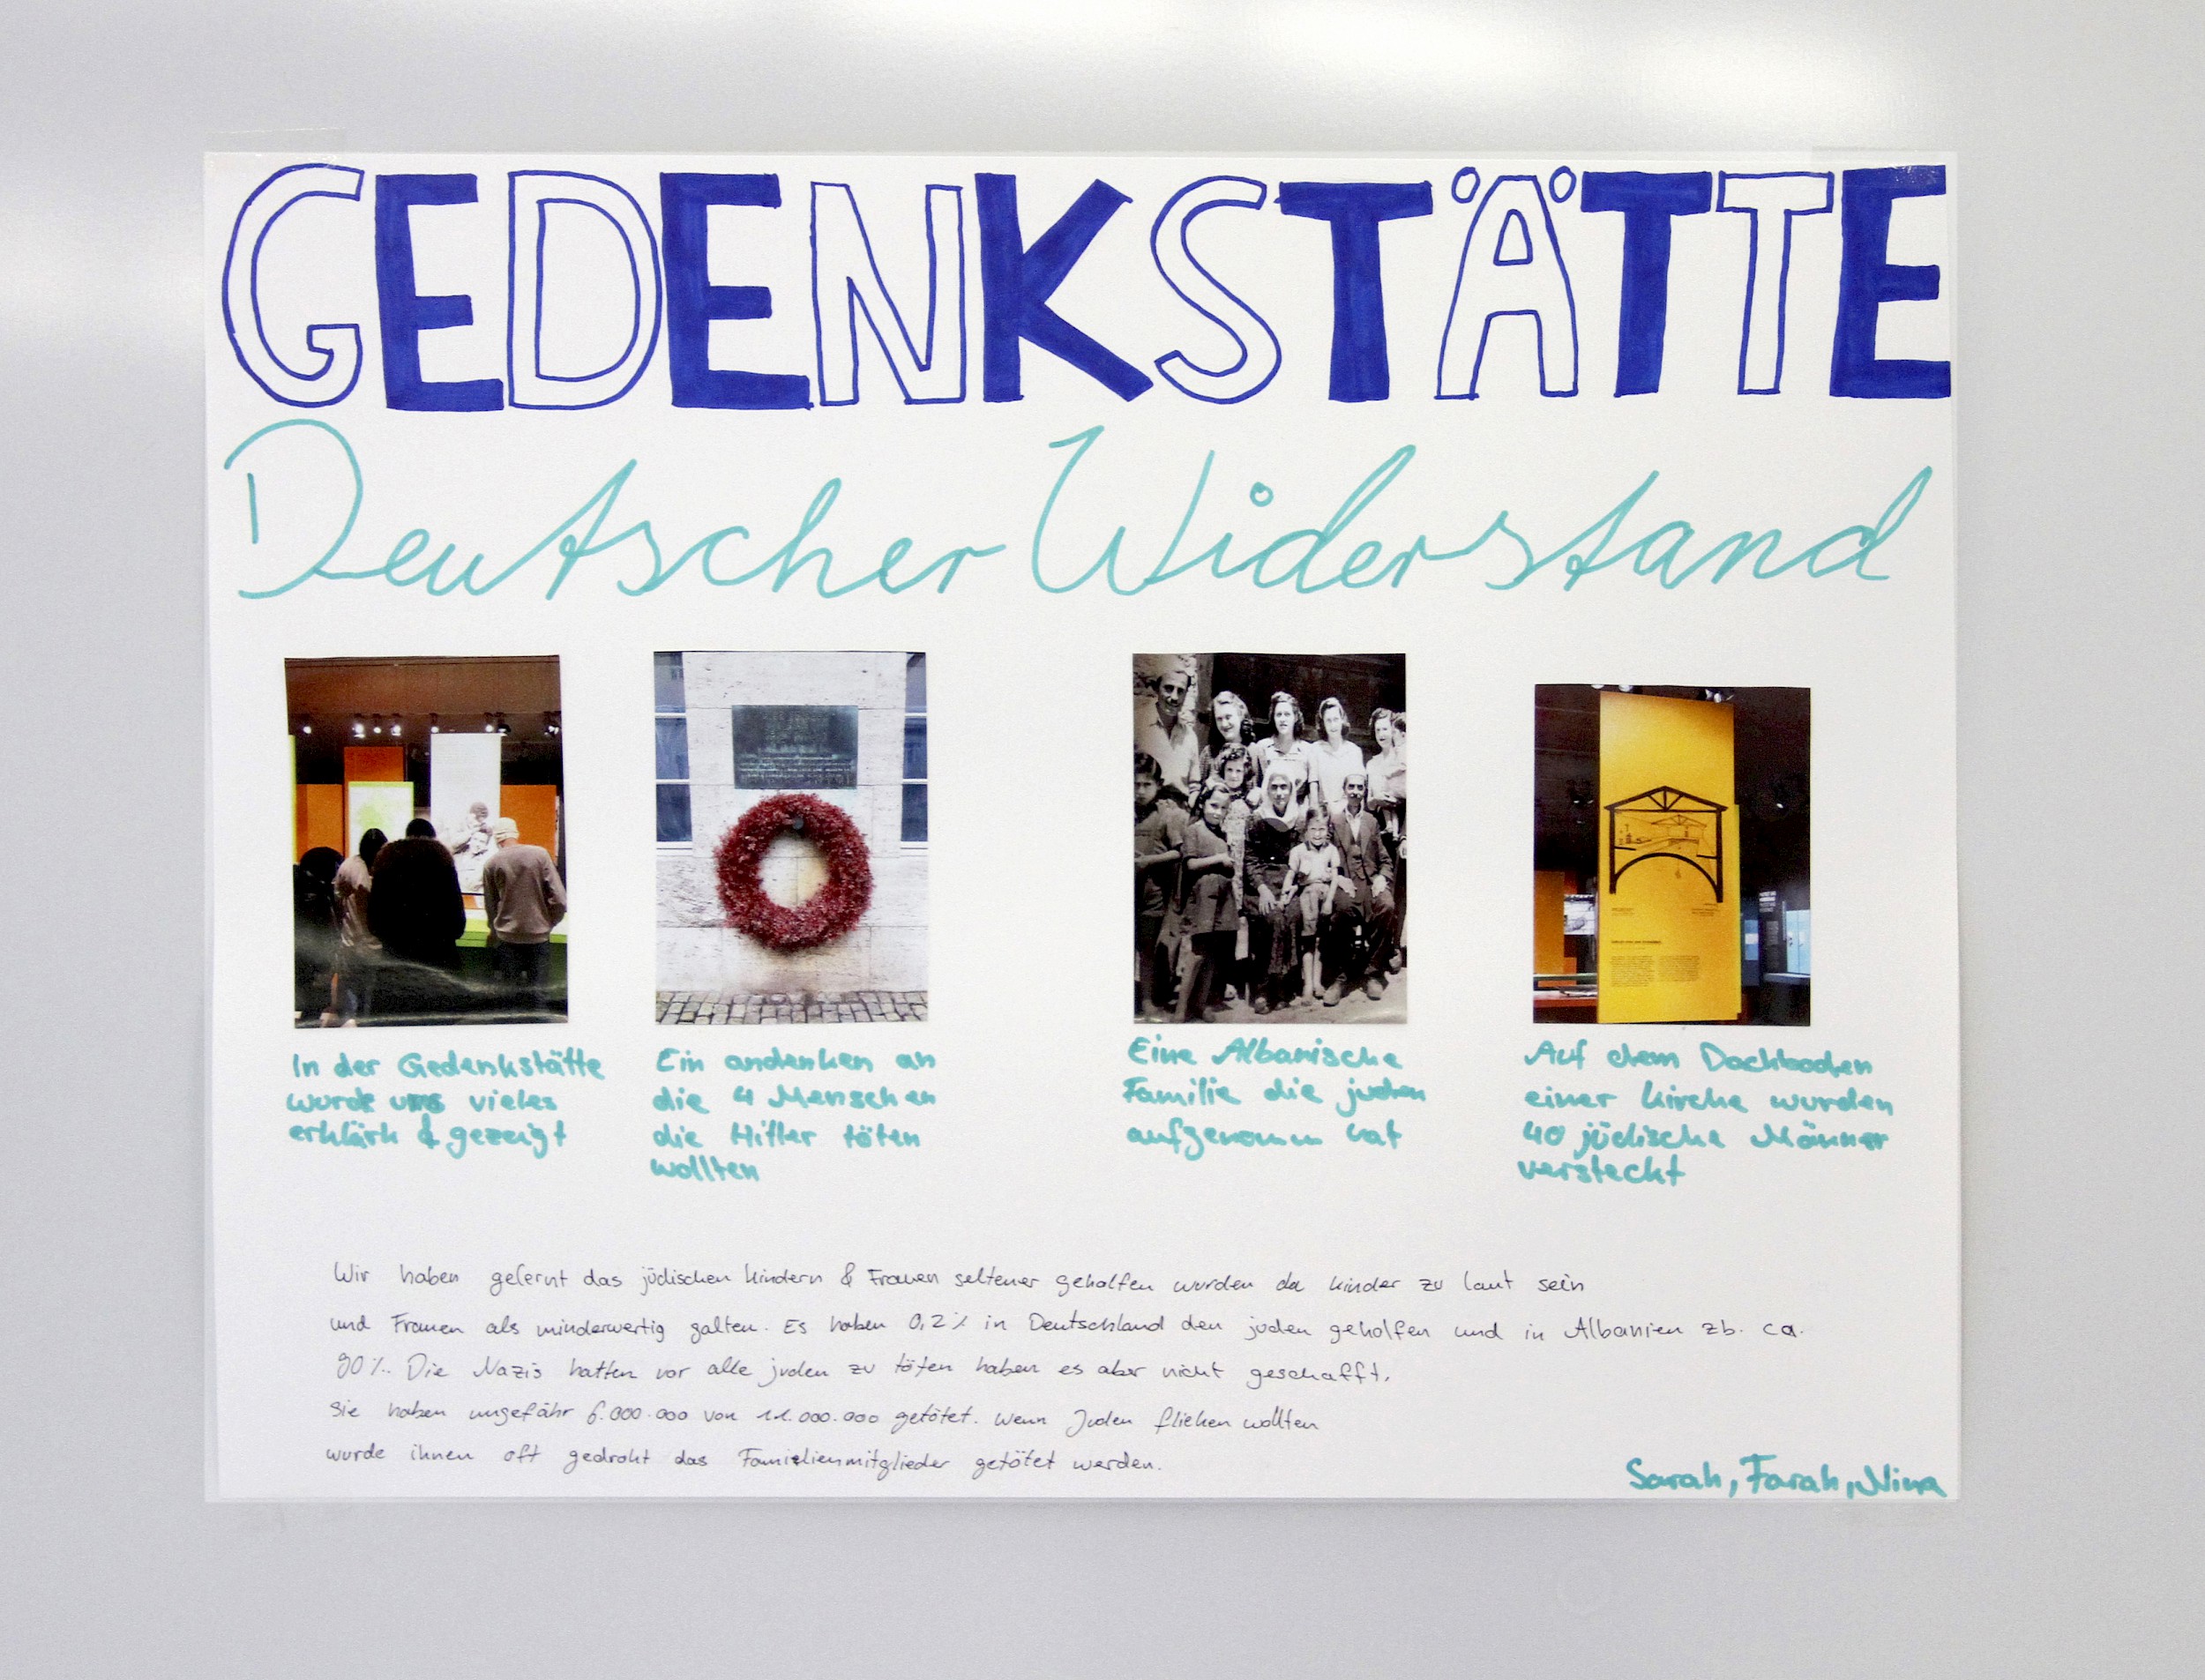 GEDENKSTÄTTE
Deutscher Widerstand
In der Gedenkstätte
wurde uns vieles
erklärt & gezeigt
Ein andenken an
die 4 Menschen
die Hitler töten
wollten
Eine Albanische
Familie die juden
aufgenomm hat
Auf dem Dachboden
einer kirche wurden
40 jüdische Männer
versteckt
Wir haben gelernt das jüdischen kindern & Frauen seltener geholfen wurden da kinder zu laut sein
und Frauen als minderwertig galten. Es haben 0,2% in Deutschland den juden geholfen und in Albanien zb. ca.
90%. Die Nazis hatten vor alle juden zu töten haben es aber nicht geschafft.
Sie haben ungefähr 6.000.000 von 11.000.000 getötet. wenn Juden fliehen wollten
wurde ihnen oft gedroht das Familienmitglieder getötet werden.
Sarah, Farah, Nina